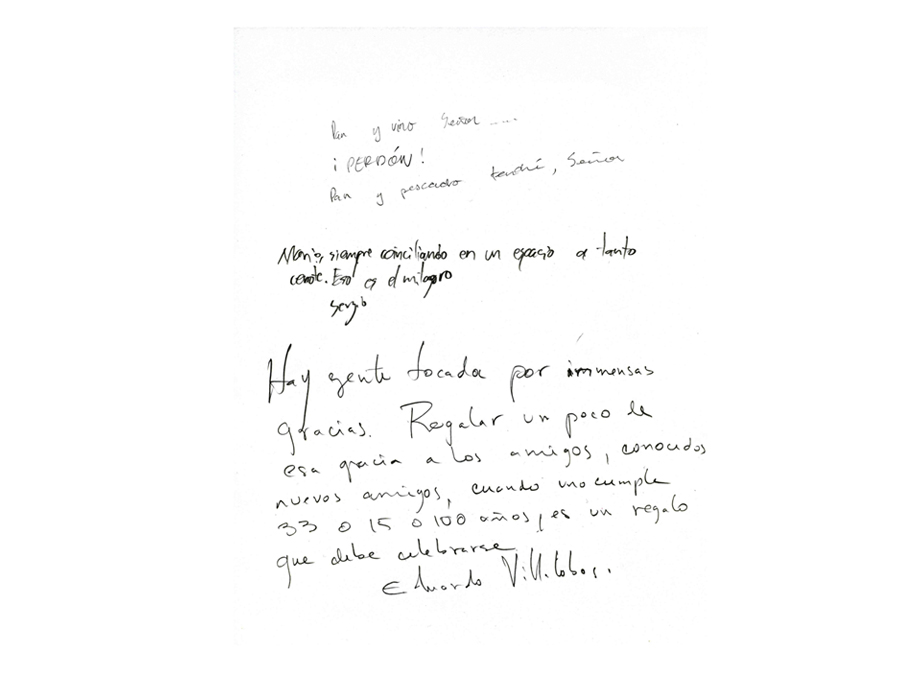 Pan y vino Señor.....
¡PERDÓN!
Pan y pescado tendré, Señor
siempre coinciliando en un espacio a tanto
Eso es el milagro
Sergio
Hay gente tocada por immensas
gracias. Regalar un poco de
esa gracia a los amigos, conocidos
nuevos amigos, cuando uno cumple
33 o 15 o 100 años, es un regalo
que debe celebrarse
Eduardo Villalobos.